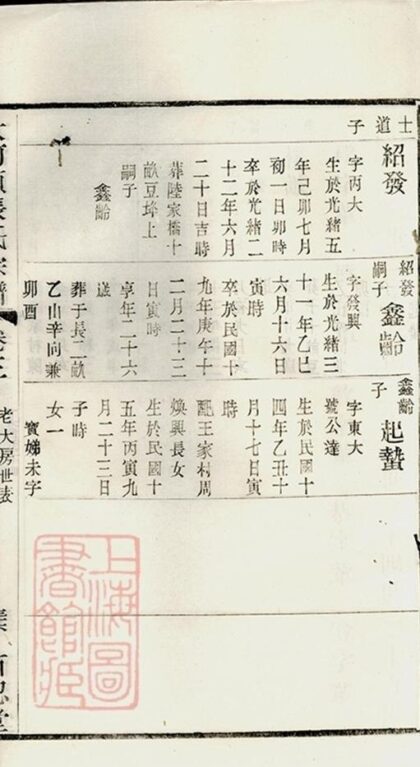 士道子
紹發
字丙大
生於光緒五
年己卯七月
初一日卯時
卒於光緒二
十二年六月
二十日吉時
葬陸家橋十
畝豆垰上
嗣子
鑫齡
紹發
嗣子
鑫齡
字發興
生於光緒三
十一年乙巳
六月十六日
寅時
卒於民國十
九年庚午十
二月二十三
日寅時
享年二十六
歲
葬于長二畝
乙山辛向兼
卯酉
鑫齡
子
起蟄
字東大
號公達
生於民國十
四年乙丑十
月十七日寅
時
配王家村周
煥興長女
生於民國十
五年丙寅九
月二十三日
子時
女一
寶娣未字
張氏宗譜
老大房世表
百忍堂
上海圖
書館藏